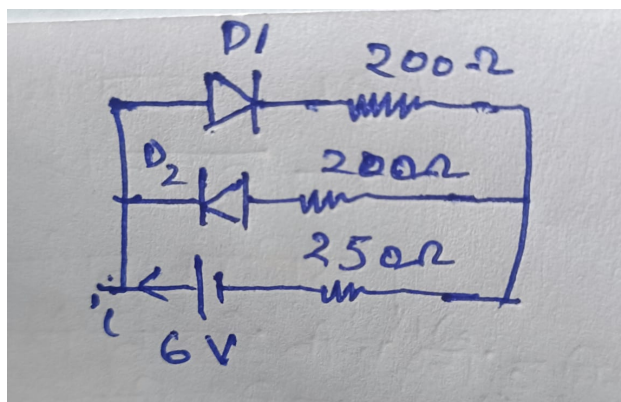 D1
200Ω
D2
200Ω
250Ω
i
6V